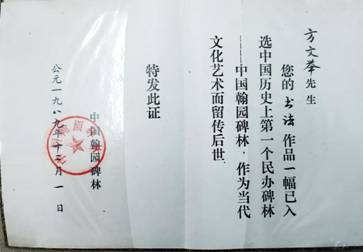 方文举先生
您的书法作品一幅已入
选中国历史上第一个民办碑林
——中国翰园碑林，作为当代
文化艺术而留传后世。
特发此证
中国翰园碑林
公元一九八九年十二月一日